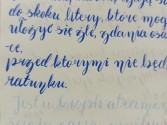 do skoku litery, które mogą
ułożyć się źle, zdania osa-
przed którymi nie będzie
ratunku.